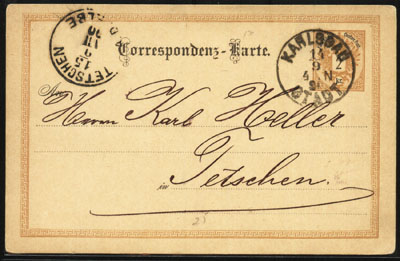 Correspondenz-Karte.
TETSCHEN
15
KARLSBAD
11
9
4 N
STADT
An
Herrn Karl Heller
in Tetschen.